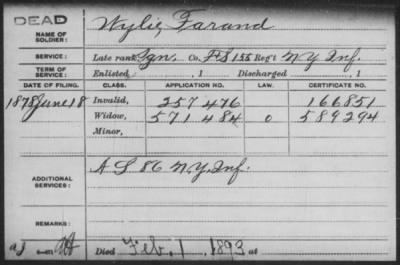 DEAD
NAME OF SOLDIER: Wylie, Farand
SERVICE: Late rank, Co. F & 155 Reg't N.Y. Inf.
TERM OF SERVICE: Enlisted , 1 Discharged , 1
DATE OF FILING. CLASS. APPLICATION NO. LAW. CERTIFICATE NO.
1878 June 18 Invalid, 257 476 166851
Widow, 571 484 0 589294
Minor,
ADDITIONAL SERVICES: 86 N.Y. Inf.
REMARKS:
Died Feb. 1, 1893 at